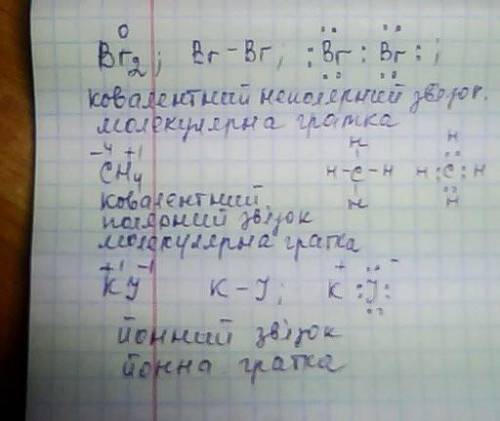 0
Br2; Br - Br; :Br:Br:;
ковалентний неполярний зв'язок.
молекулярна гратка
-4 +1 H H
CH4 H-C-H H:C:H
ковалентний H H
полярний зв'язок
молекулярна гратка
+1 -1 + -
KJ K-J; K :J:
йонний зв'язок
йонна гратка